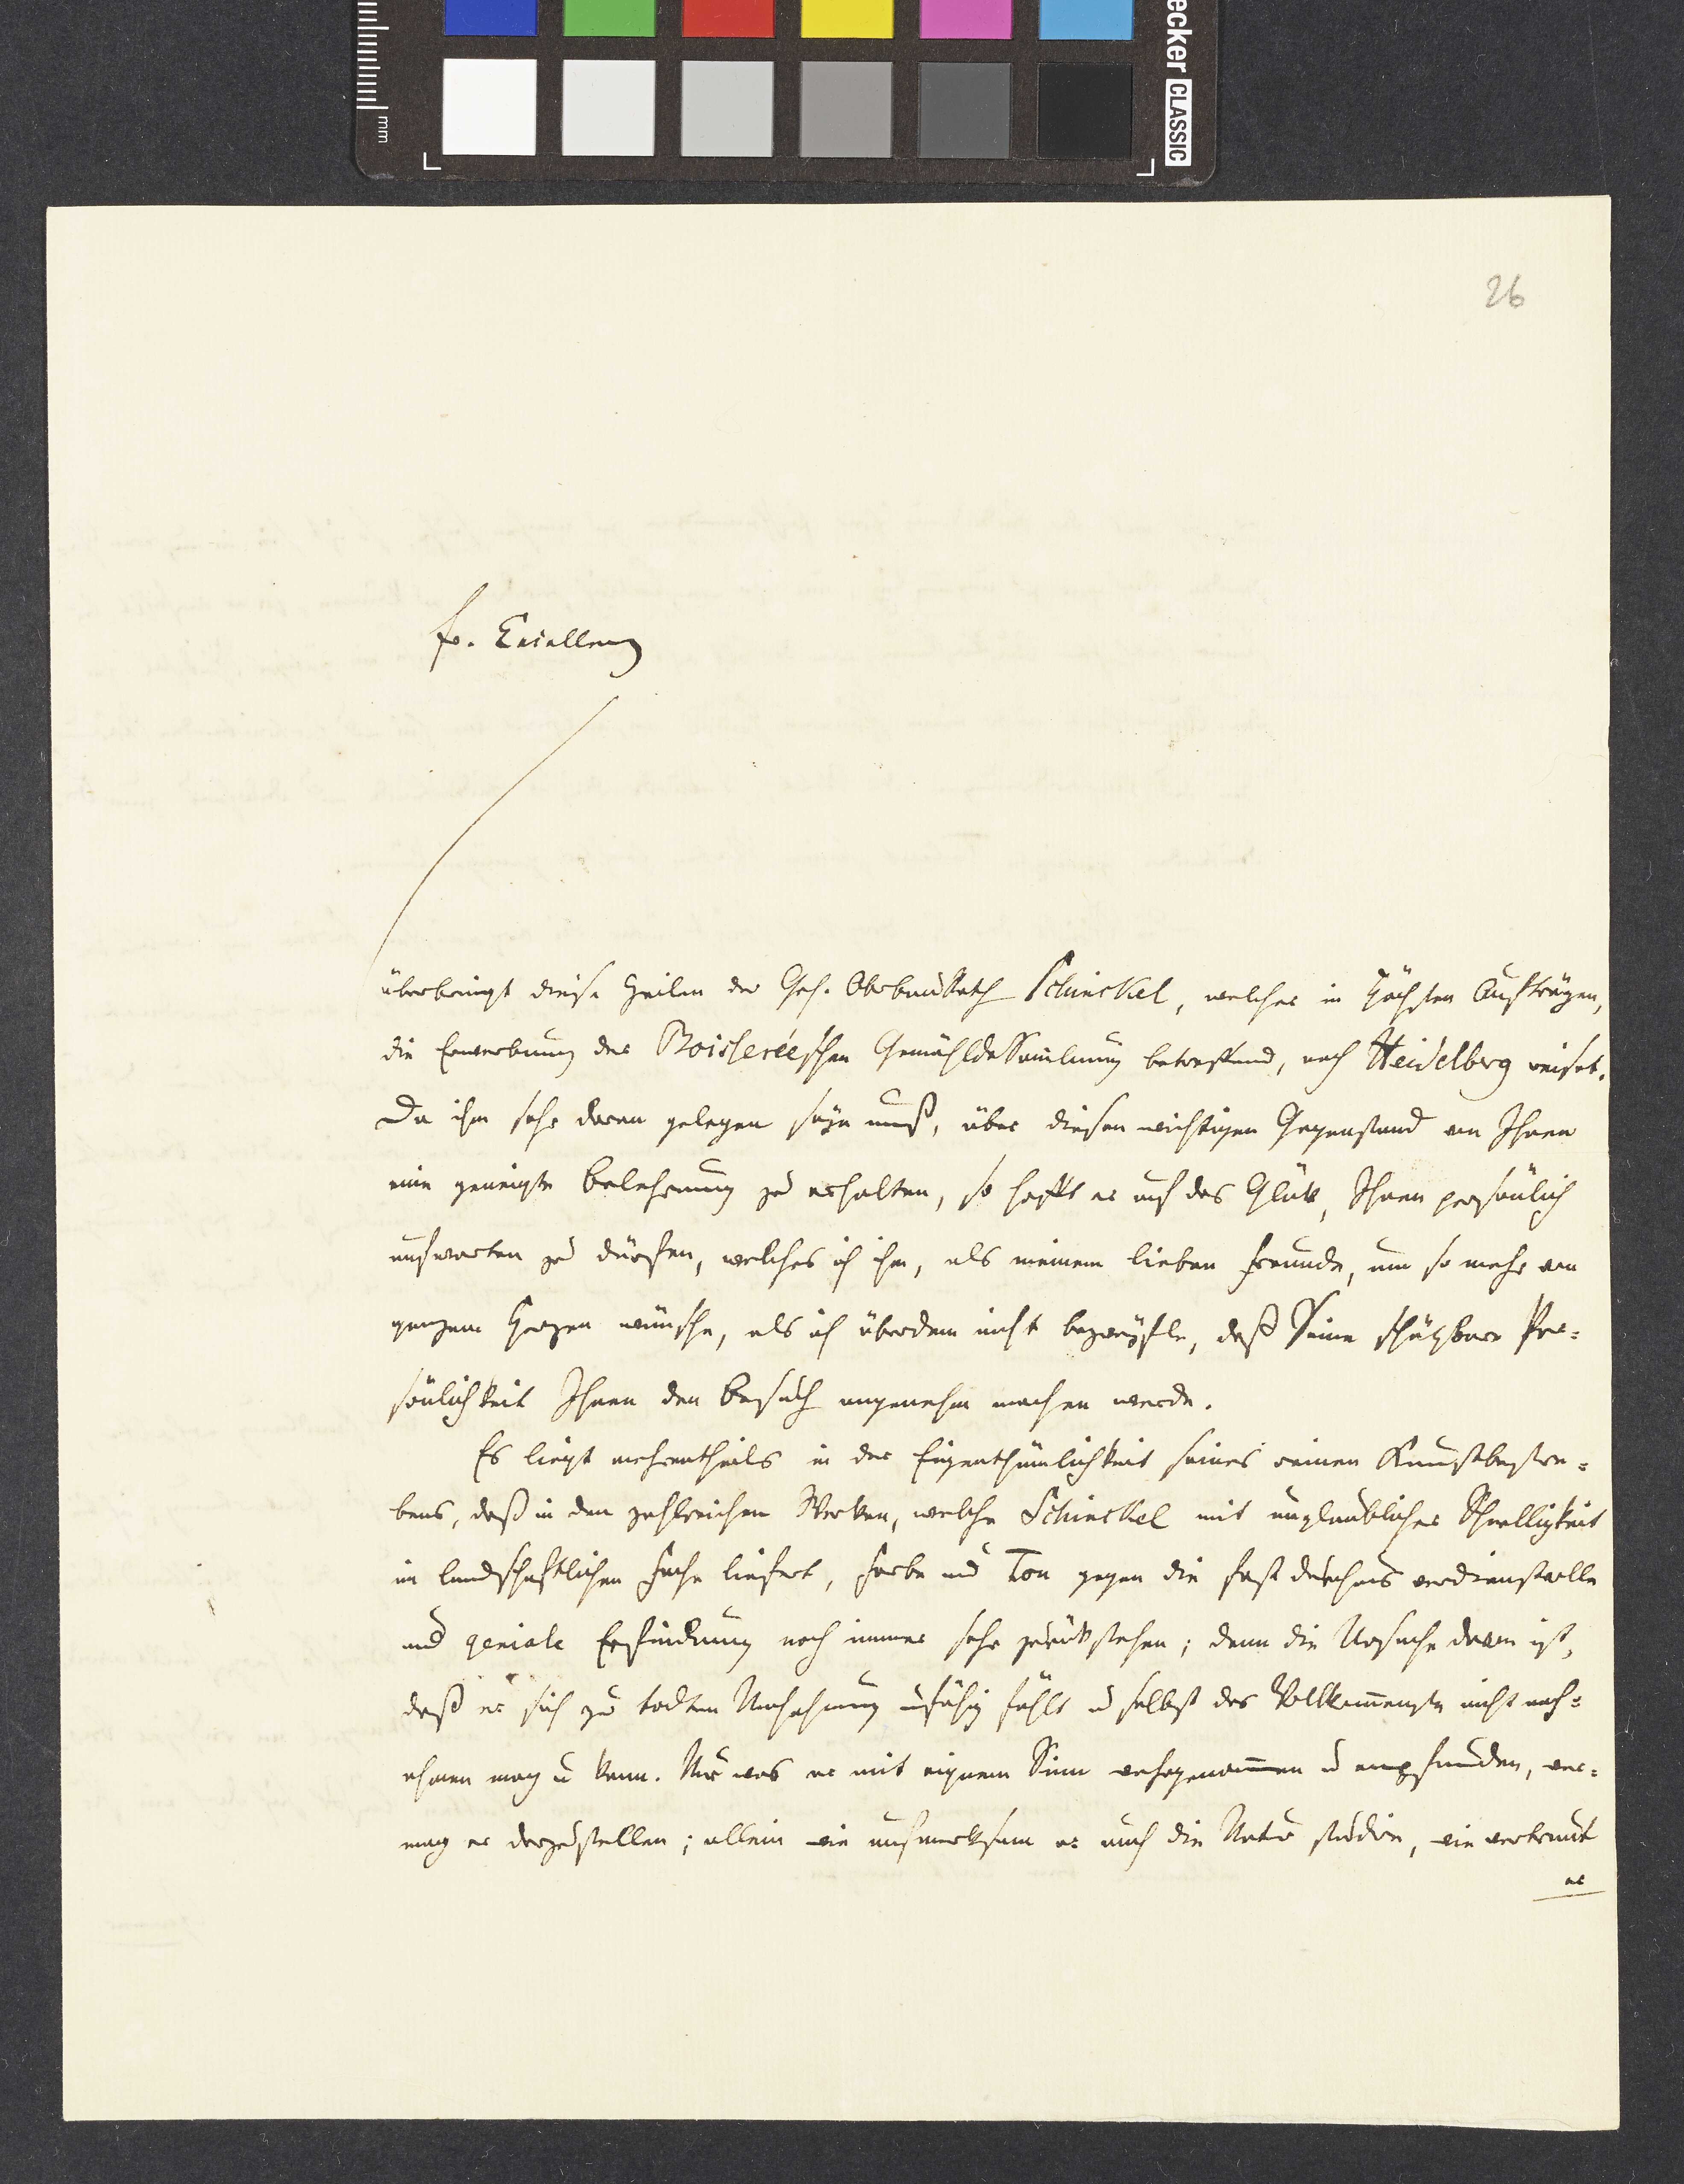 ecker CLASSIC
mm
26
Ew. Excellenz
überbringt diese Zeilen der Geh. OberbauRath Schinckel, welcher in höchsten Aufträgen,
die Erwerbung der Boisseréeschen GemähldeSam̅lung betreffend, nach Heidelberg reiset.
Da ihm sehr daran gelegen seyn muß, über diesen wichtigen Gegenstand von Ihnen
eine geneigte Belehrung zu erhalten, so hofft er auf das Glük, Ihnen persönlich
aufwarten zu dürfen, welches ich ihm, als meinem lieben Freunde, um so mehr von
ganzem Herzen wünsche, als ich überdem nicht bezweyfle, daß Seine schätzbare Per=
sönlichkeit Ihnen den Besuch angenehm machen werde.
Es liegt mehrentheils in der Eigenthümlichkeit seines reinen Kunstbestre=
bens, daß in den zahlreichen Werken, welche Schinckel mit unglaublicher Schnelligkeit
im landschaftlichen Fache liefert, Farbe und Ton gegen die fast durchaus verdienstvolle
und geniale Erfindung noch immer sehr zurükstehen; denn die Ursache davon ist,
daß er sich zu todten Nachahmung unfähig fühlt u selbst das Vollkom̅enste nicht nach=
ahmen mag u kann. Nur was er mit eignem Sinn wahrgenom̅en u empfunden, ver=
mag er darzustellen; allein wie aufmerksam er auch die Natur studire, wie vertraut
er